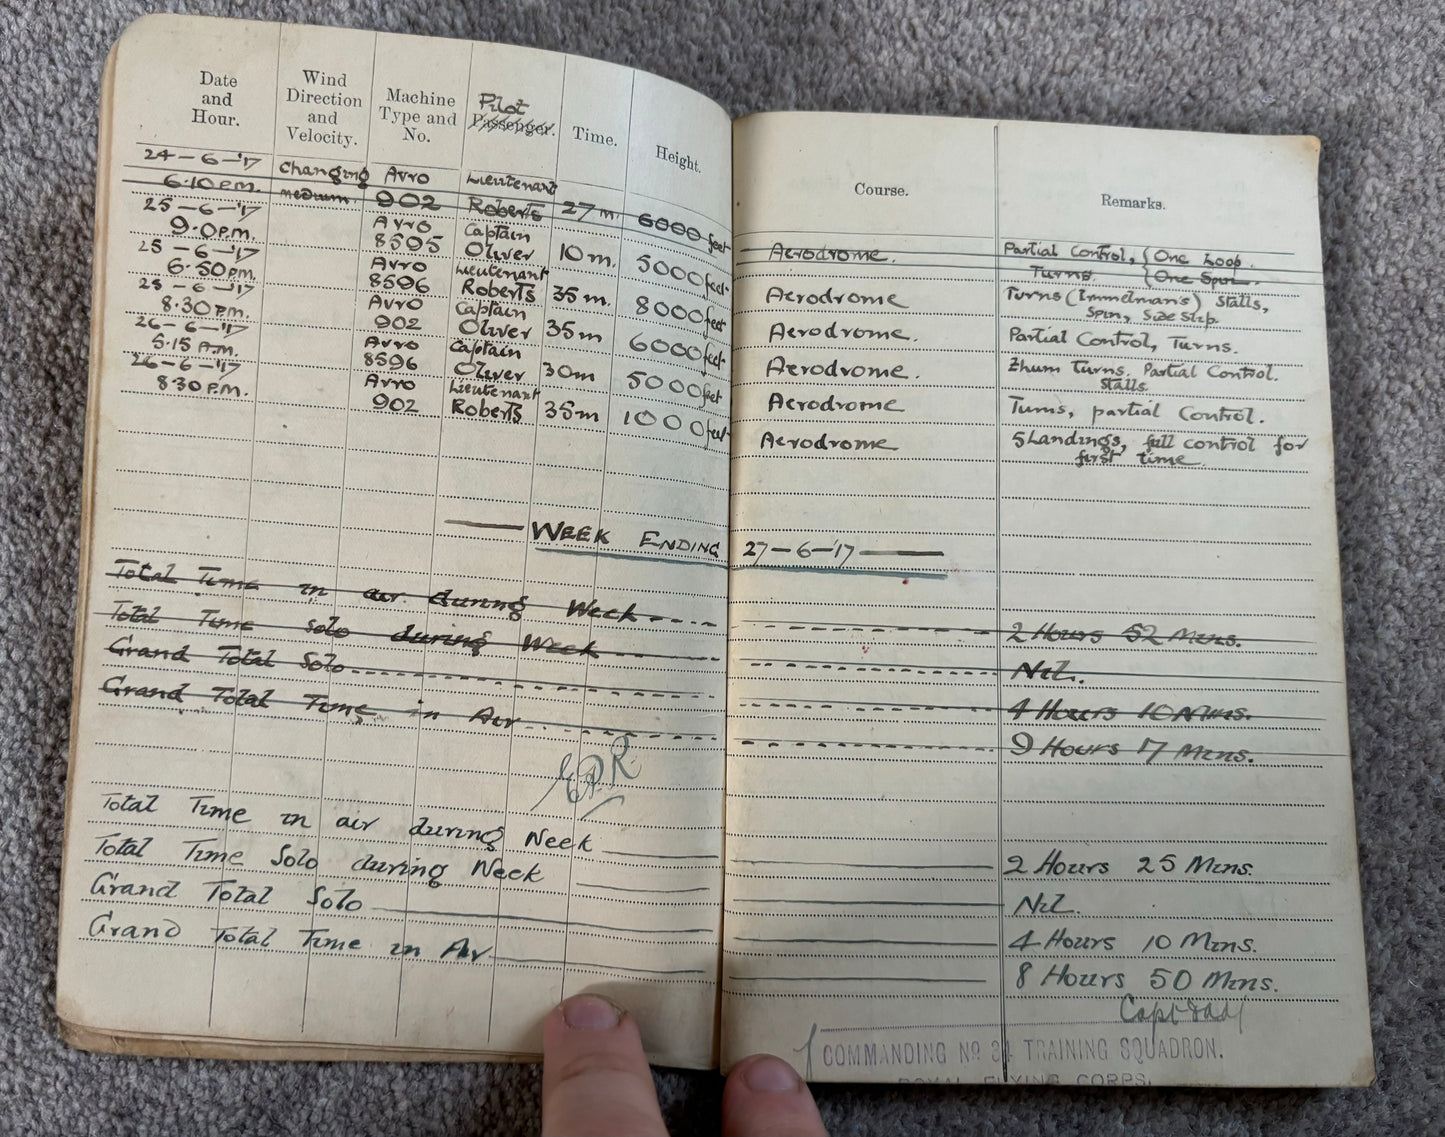 Date and Hour. Wind Direction and Velocity. Machine Type and No. Pilot Passenger. Time. Height. Course. Remarks.
24-6-'17 Changing Avro Lieutenant
6.10 p.m. medium. 902 Roberts 27 m. 6000 feet Aerodrome. Partial Control, { One Loop.
Turns. { One Spin.
25-6-'17 Avro Captain
9.0 p.m. 8595 Oliver 10 m. 5000 feet Aerodrome Turns (Immelman's) Stalls,
Spin, Side Slip.
25-6-'17 Avro Lieutenant
6.50 p.m. 8596 Roberts 35 m. 8000 feet Aerodrome. Partial Control, Turns.
25-6-'17 Avro Captain
8.30 p.m. 902 Oliver 35 m 6000 feet Aerodrome. Turns. Partial Control.
Stalls.
26-6-'17 Avro Captain
5.15 A.m. 8596 Oliver 30m 5000 feet Aerodrome Turns, partial Control.
26-6-'17 Avro Lieutenant
8.30 P.m. 902 Roberts 35 m 1000 feet Aerodrome 5 Landings, full control for
first time.
WEEK ENDING 27-6-'17
Total Time in air during Week 2 Hours 52 Mins.
Total Time solo during Week Nil.
Grand Total Solo 4 Hours 10 Mins.
Grand Total Time in Air 9 Hours 17 Mins.
Total Time in air during Week 2 Hours 25 Mins.
Total Time Solo during Week Nil.
Grand Total Solo 4 Hours 10 Mins.
Grand Total Time in Air 8 Hours 50 Mins.
Capt
COMMANDING No 34 TRAINING SQUADRON.
ROYAL FLYING CORPS.